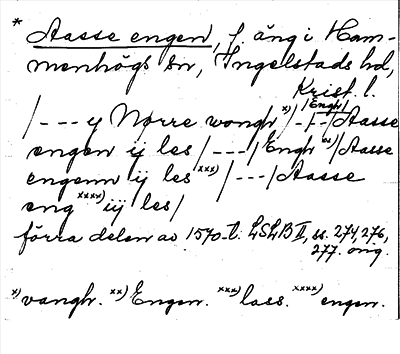 * Aasse engen, f. äng i Ham-
menhögs sn, Ingelstads hd,
Krist. l.
/--- y Norre wongh x)/--/Engh/--/Aasse
engen ij les/---/Engh xx)/Aasse
engenn ij les xxx)/---/Aasse
eng xxxx) iij les/
förra delen av 1570-t. LSLB II, ss. 274, 276,
277. orig.
x) vangh. xx) Engen. xxx) lass. xxxx) engen.